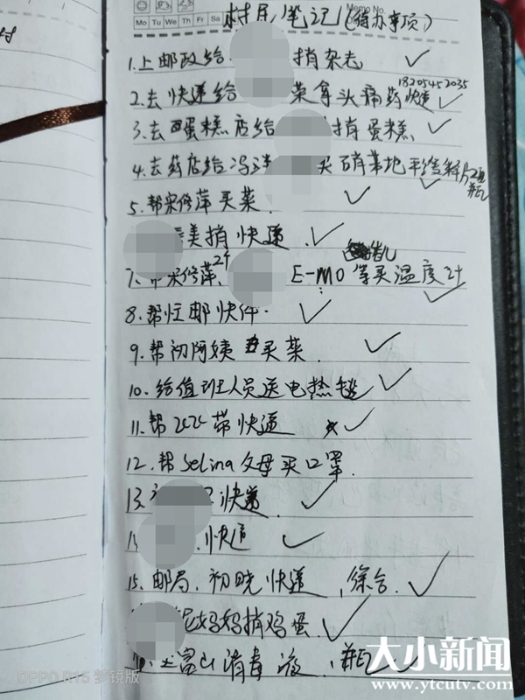 Memo No.
Mo Tu We Th Fr Sa Su
村民笔记(待办事项)
1.上邮政给 捎杂志
2.去快递给 荣拿头痛药快递
3.去 蛋糕店给 捎蛋糕
4.去药店给冯 买硝苯地平缓释片
5.帮宋修萍买菜
美捎快递
7. 宋修萍 E-MO等买温度计
8.帮忙邮快件
9.帮初阿姨 买菜
10.给值班人员送电热毯
11.帮 带快递
12.帮Selina父母买口罩
13. 快递
快递
15.邮局.初晓快递,综合.
妮妈妈捎鸡蛋
消毒液
OPPO R15 梦镜版
大小新闻
www.ytcutv.com